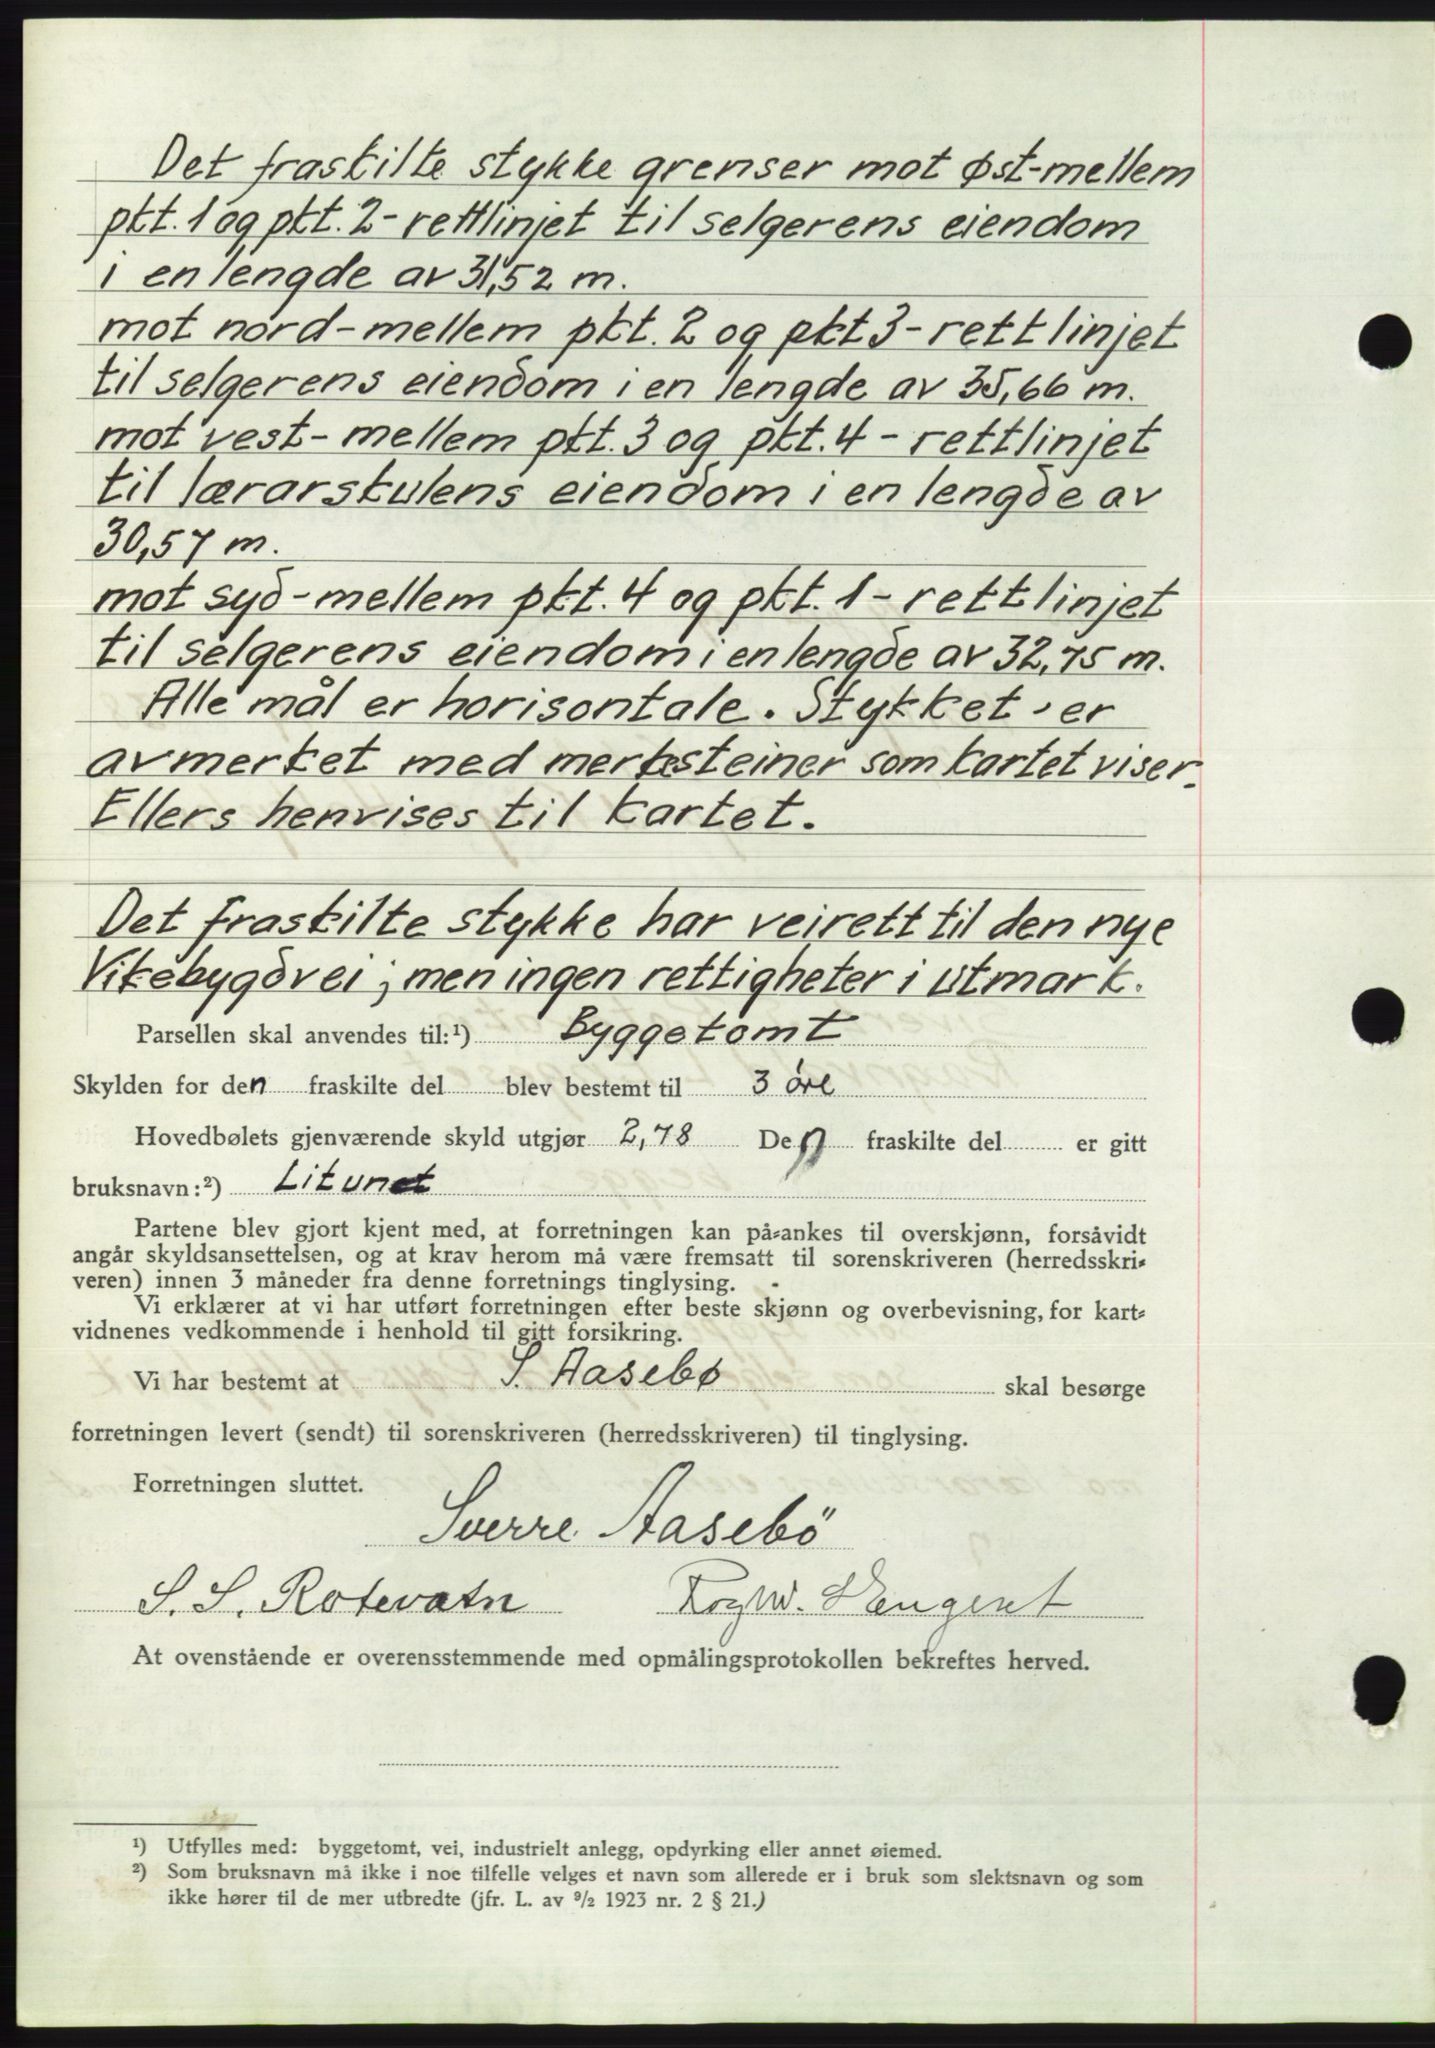 Det fraskilte stykke grenser mot øst-mellem
pkt. 1 og pkt. 2 - rettlinjet til selgerens eiendom
i en lengde av 31,52 m.
mot nord - mellem pkt. 2 og pkt 3 - rettlinjet
til selgerens eiendom i en lengde av 35,66 m.
mot vest - mellem pkt. 3 og pkt. 4 - rettlinjet
til lærarskulens eiendom i en lengde av
30,57 m.
mot syd - mellem pkt. 4 og pkt. 1 - rettlinjet
til selgerens eiendom i en lengde av 32,75 m.
Alle mål er horisontale. Stykket er
avmerket med merkesteiner som kartet viser.
Ellers henvises til kartet.
Det fraskilte stykke har veirett til den nye
Vikebygdvei; men ingen rettigheter i utmark.
Parsellen skal anvendes til:¹) Byggetomt
Skylden for den fraskilte del blev bestemt til 3 øre
Hovedbølets gjenværende skyld utgjør 2,78 Den fraskilte del er gitt
bruksnavn:²) Litunet
Partene blev gjort kjent med, at forretningen kan på-ankes til overskjønn, forsåvidt
angår skyldsansettelsen, og at krav herom må være fremsatt til sorenskriveren (herredsskri-
veren) innen 3 måneder fra denne forretnings tinglysing.
Vi erklærer at vi har utført forretningen efter beste skjønn og overbevisning, for kart-
vidnenes vedkommende i henhold til gitt forsikring.
Vi har bestemt at S. Aasebø skal besørge
forretningen levert (sendt) til sorenskriveren (herredsskriveren) til tinglysing.
Forretningen sluttet.
Sverre Aasebö
S. S. Rotevatn Ragnv. Vengeset
At ovenstående er overensstemmende med opmålingsprotokollen bekreftes herved.
¹) Utfylles med: byggetomt, vei, industrielt anlegg, opdyrking eller annet øiemed.
²) Som bruksnavn må ikke i noe tilfelle velges et navn som allerede er i bruk som slektsnavn og som
ikke hører til de mer utbredte (jfr. L. av ⁹/₂ 1923 nr. 2 § 21.)